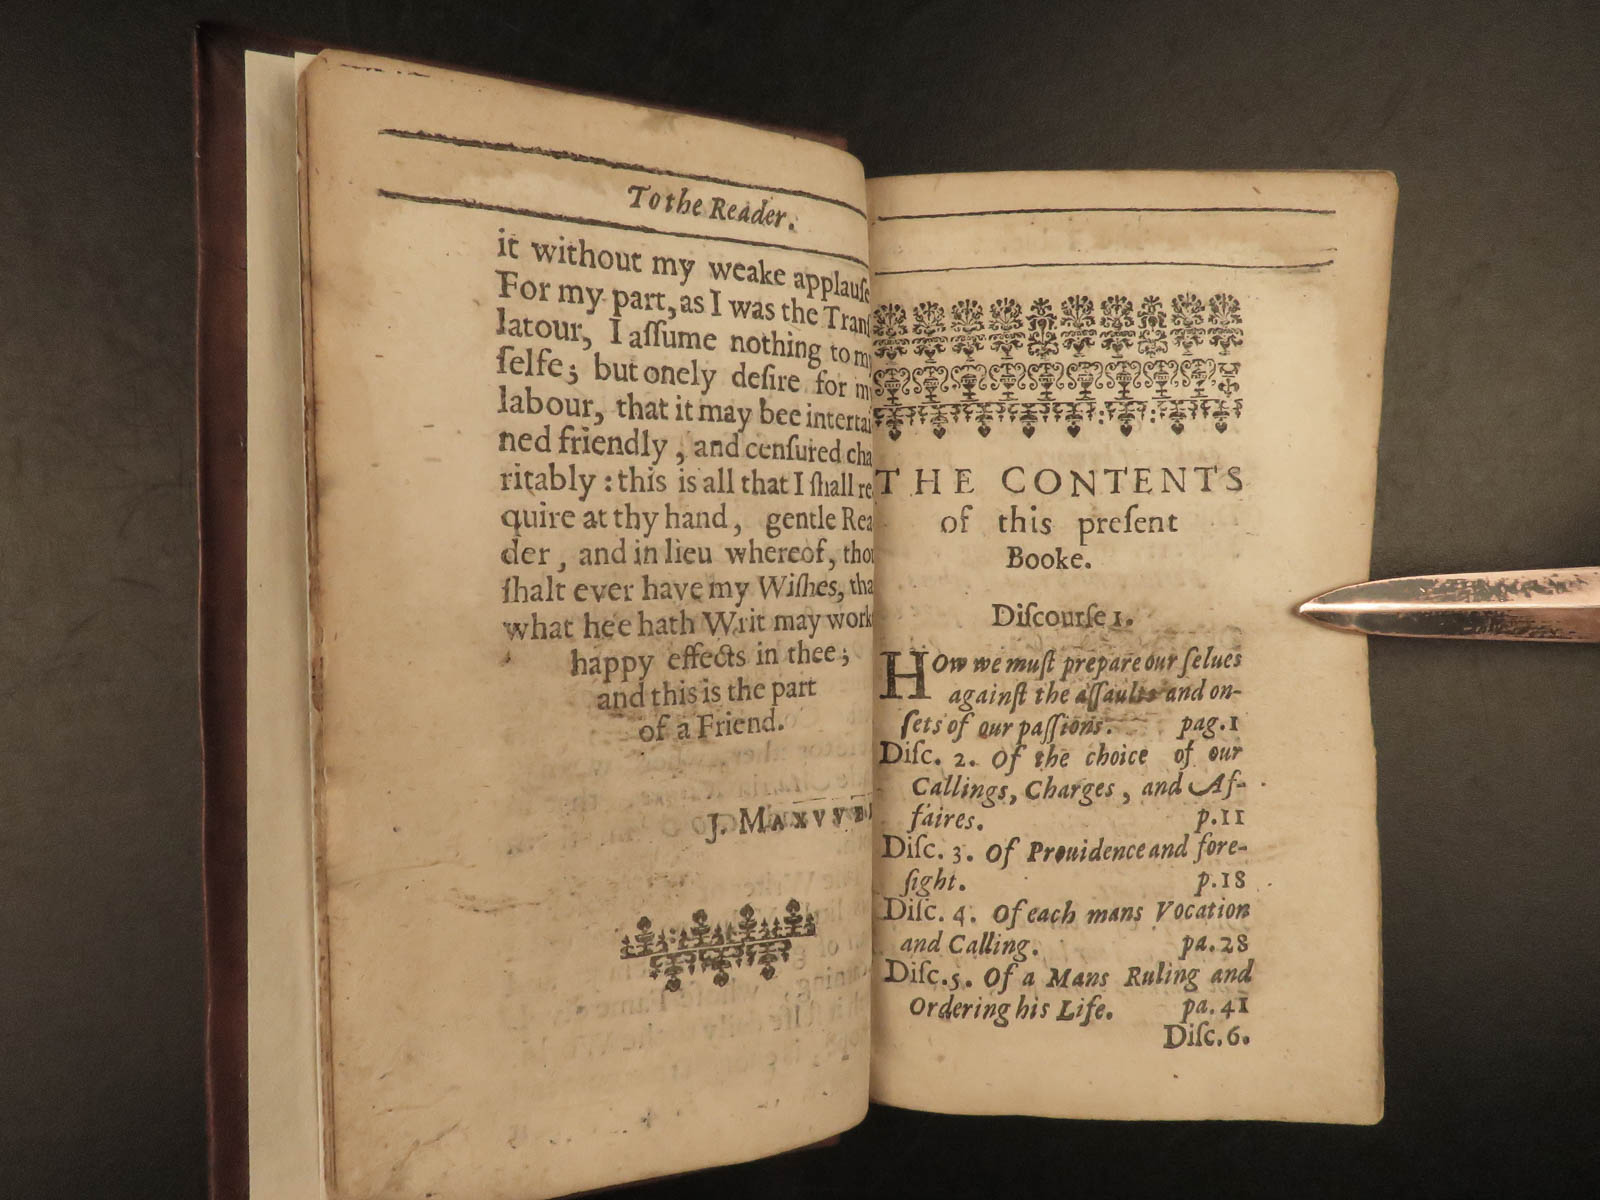 To the Reader.
it without my weake applauſe
For my part, as I was the Tranſ
latour, I aſſume nothing to my
ſelfe; but onely deſire for my
labour, that it may bee intertai
ned friendly, and cenſured cha
ritably: this is all that I ſhall re
quire at thy hand, gentle Rea
der, and in lieu whereof, thou
ſhalt ever have my Wiſhes, tha
what hee hath Writ may work
happy effects in thee;
and this is the part
of a Friend.
J. MAXVVE
THE CONTENTS
of this preſent
Booke.
Diſcourſe 1.
HOw we muſt prepare our ſelues
againſt the aſſaults and on-
ſets of our paſſions. pag. 1
Diſc. 2. Of the choice of our
Callings, Charges, and Af-
faires. p. 11
Diſc. 3. Of Prouidence and fore-
ſight. p. 18
Diſc. 4. Of each mans Vocation
and Calling. pa. 28
Diſc. 5. Of a Mans Ruling and
Ordering his Life. pa. 41
Diſc. 6.